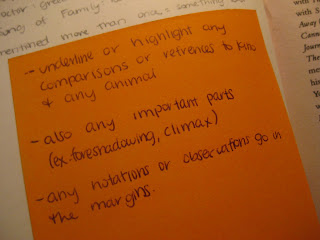 mentioned more than once: something
- underline or highlight any
comparisons or refrences to Kino
& any animal
- also any important parts
(ex. foreshadowing, climax)
- any notations or observations go in
the margins.
with
with S
Away
Journe
The